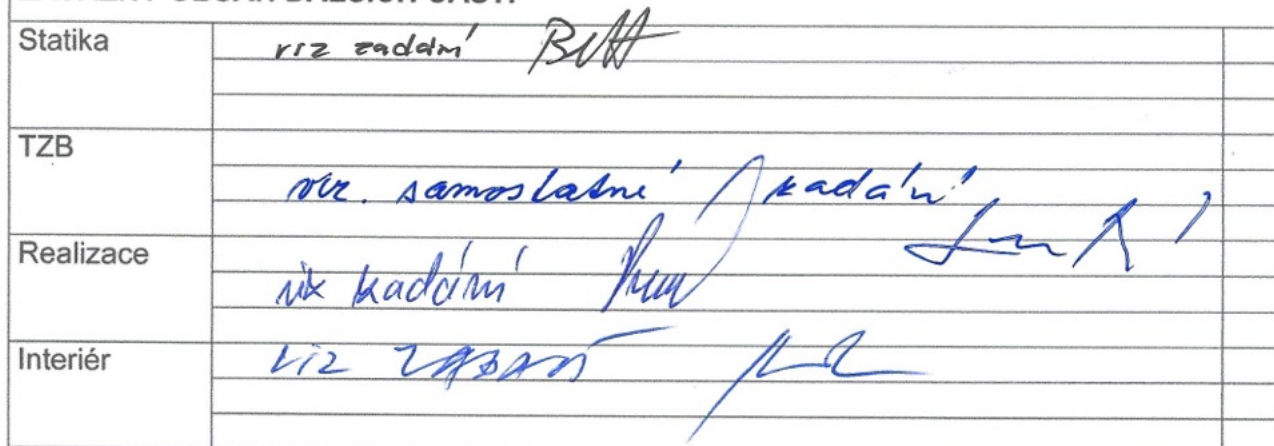 Statika
viz zadání
TZB
viz. samostatné zadání
Realizace
viz zadání
Interiér
viz ZADÁNÍ